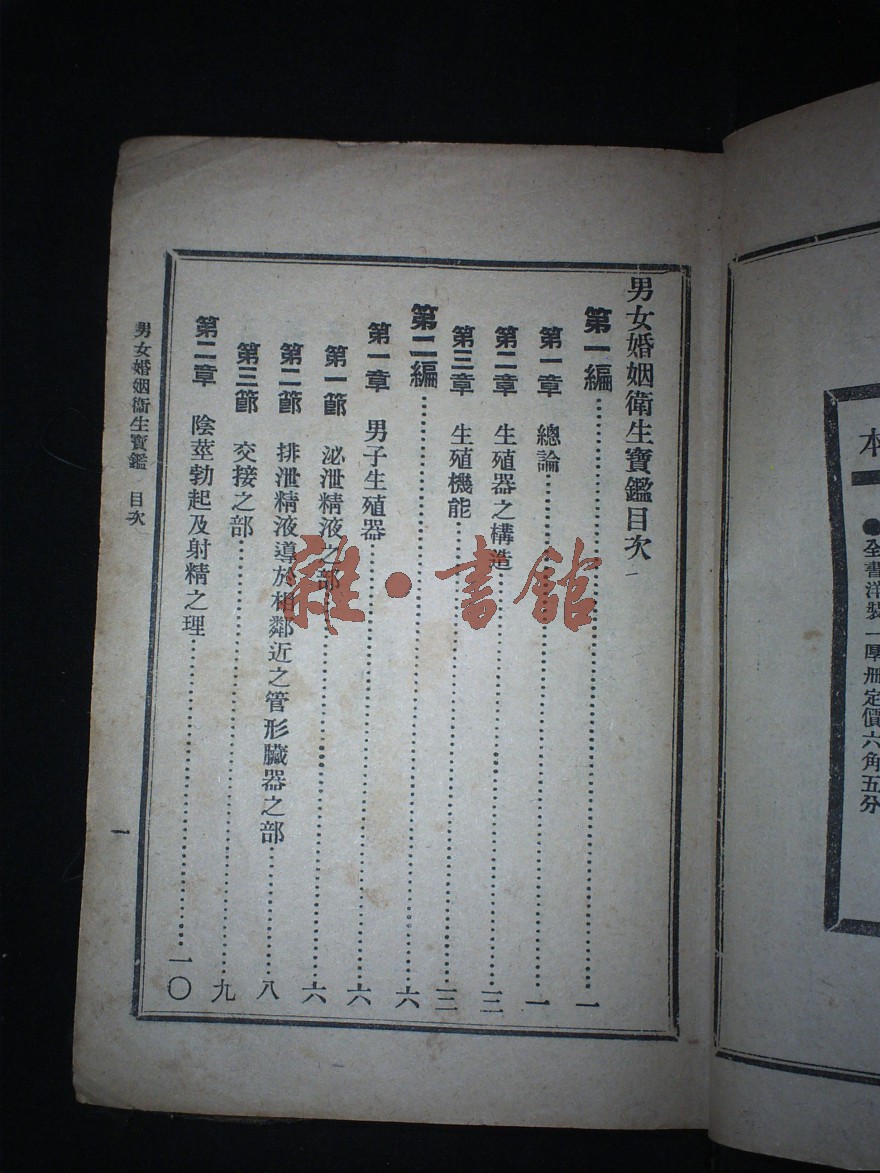 本
●全書洋裝一厚册定價六角五分
男女婚姻衞生寶鑑目次
第一編……一
第一章 總論……一
第二章 生殖器之構造……三
第三章 生殖機能……三
第二編……六
第一章 男子生殖器……六
第一節 泌泄精液之部……六
第二節 排泄精液導於相鄰近之管形臟器之部……八
第三節 交接之部……九
第二章 陰莖勃起及射精之理……一〇
男女婚姻衞生寶鑑 目次
一
雜·書館